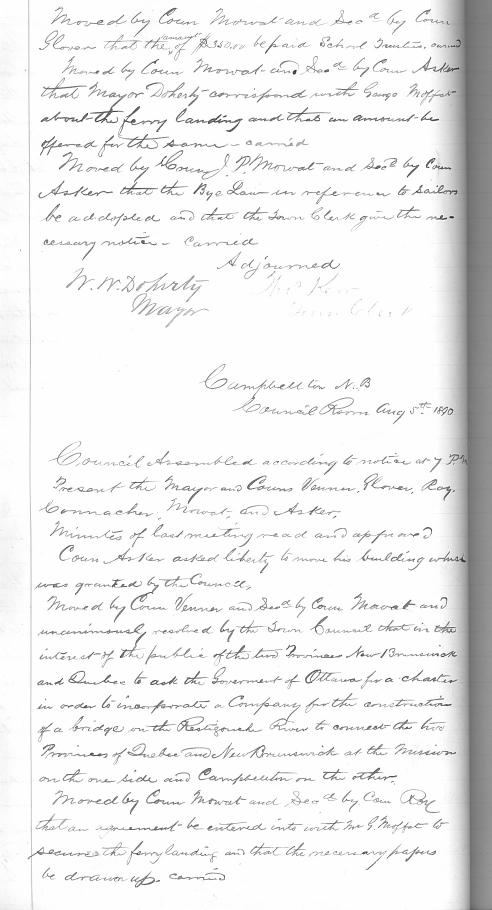 Moved by Coun Mowat and Secd by Coun
Glover that the amount of $350.00 be paid School Trustees, carried
Moved by Coun Mowat and Secd by Coun Asker
that Mayor Doherty correspond with George Moffat
about the ferry landing and that an amount be
offered for the same - carried
Moved by Coun J. P. Mowat and Secd by Coun
Asker that the Bye Law in reference to sailors
be addopted and that the Town Clerk give the ne-
cessary notice - carried
Adjourned
W. W. Doherty
Mayor
Town Clerk
Campbellton N.B
Council Room Aug 5th 1890
Council Assembled according to notice at 7 P.M
Present the Mayor and Couns Venner, Glover, Roy,
Connacher, Mowat, and Asker,
Minutes of last meeting read and approved
Coun Asker asked liberty to move his building which
was granted by the Council,
Moved by Coun Venner and Secd by Coun Mowat and
unanimously resolved by the Town Council that in the
interest of the public of the two Provinces New Brunswick
and Quebec to ask the Goverment of Ottawa for a charter
in order to incorporate a Company for the construction
of a bridge on the Restigouche River to connect the two
Provinces of Quebec and New Brunswick at the Mission
on the one side and Campbellton on the other.
Moved by Coun Mowat and Secd by Coun Roy
that an agreement be entered into with Mr G. Moffat to
secure the ferry landing and that the necessary papers
be drawn up carried